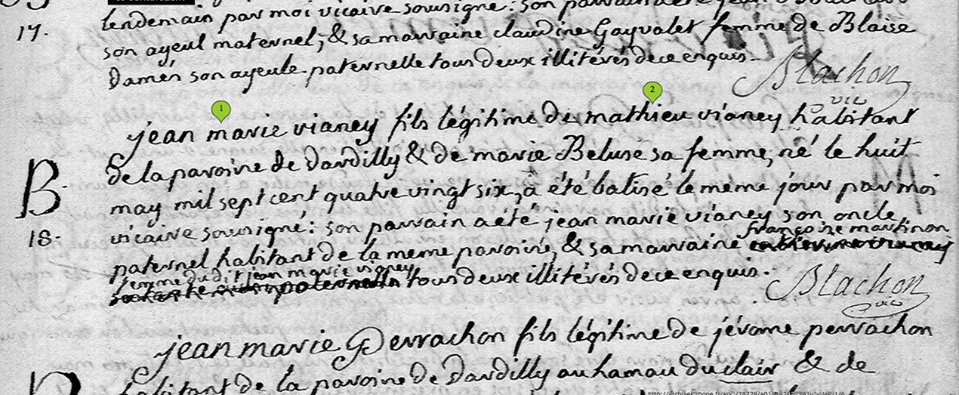 lendemain par moi vicaire sousigné: son
17.
son ayeul maternel, & sa maraine claudine Gayvalet femme de Blaise
Damés son ayeule paternelle tous deux illitérés de ce enquis.
Blachon
vic
1
2
jean marie vianey fils légitime de mathieu vianey habitant
B
de la paroine de dardilly & de marie Beluse sa femme, né le huit
may mil sept cent quatre vingt six, a été batisé le meme jour par moi
18.
vicaire sousigné: son parrain a été jean marie vianey son oncle
françoise martinon
paternel habitant de la meme paroine, & sa marraine
femme du dit jean marie vianey
tous deux illitérés de ce enquis.
Blachon
vic
jean marie Perrachon fils légitime de jérome perrachon
habitant de la paroine de Dardilly au hamau du clair & de